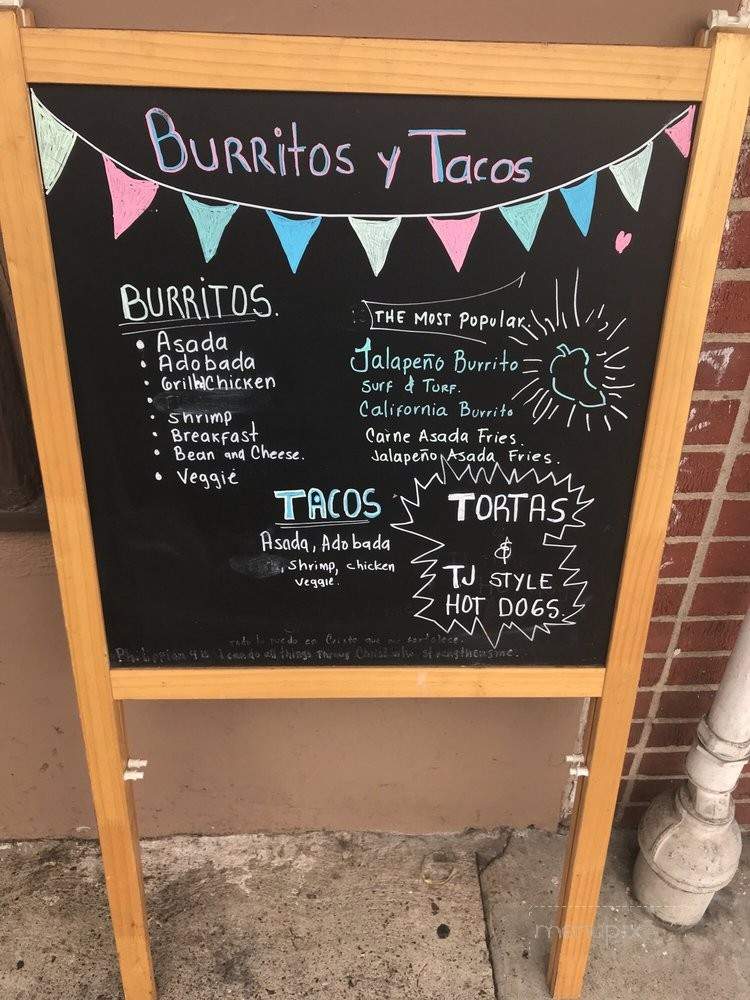 Burritos y Tacos
BURRITOS.
• Asada
• Adobada
• Grill Chicken
•
• Shrimp
• Breakfast
• Bean and Cheese.
• Veggie
THE MOST Popular.
Jalapeño Burrito
SURF & TURF.
California Burrito
Carne Asada Fries.
Jalapeño Asada Fries.
TACOS
Asada, Adobada
, Shrimp, chicken
veggie.
TORTAS
&
TJ STYLE
HOT DOGS.
Todo lo puedo en Cristo que me fortalece.
I can do all things Through Christ who strengthens me.
menupix